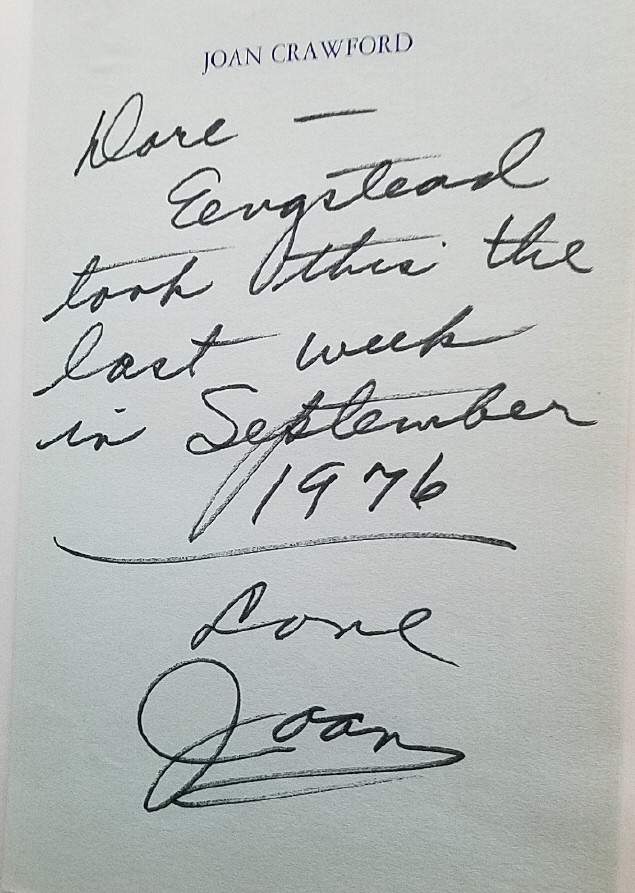 JOAN CRAWFORD
Dore —
Eengstead
took this the
last week
in September
1976
Love
Joan